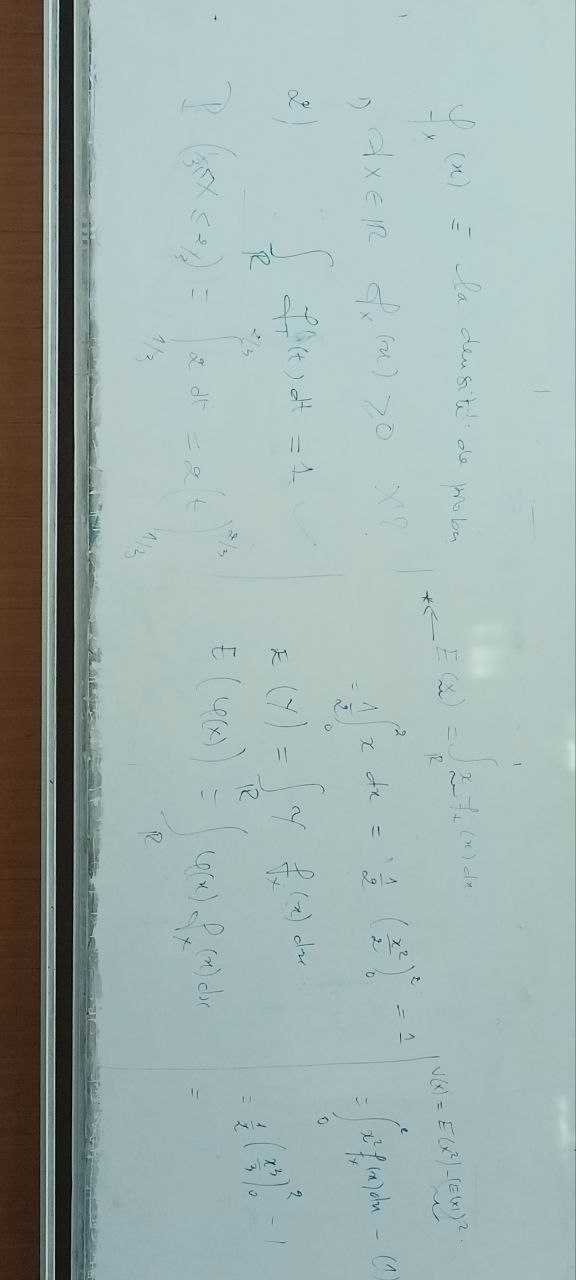 f_x(x) = la densité de proba
1) ∀x ∈ ℝ f_x(x) ⩾ 0 X?
2) ∫_ℝ f_T(t) dt = 1
P (1/3 ≤ X ≤ 2/3) = ∫_{1/3}^{2/3} 2 dt = 2 (t)_{1/3}^{2/3}
* ← E(x) = ∫_ℝ x f_x(x) dx
= 1/2 ∫_0^2 x dx = 1/2 (x²/2)_0^2 = 1
E(Y) = ∫_ℝ y f_x(x) dx
E(φ(x)) = ∫_ℝ φ(x) f_x(x) dx
V(x) = E(x²) - (E(x))²
= ∫_0^2 x² f_x(x) dx - (1)
= 1/2 (x³/3)_0^2 - 1
=